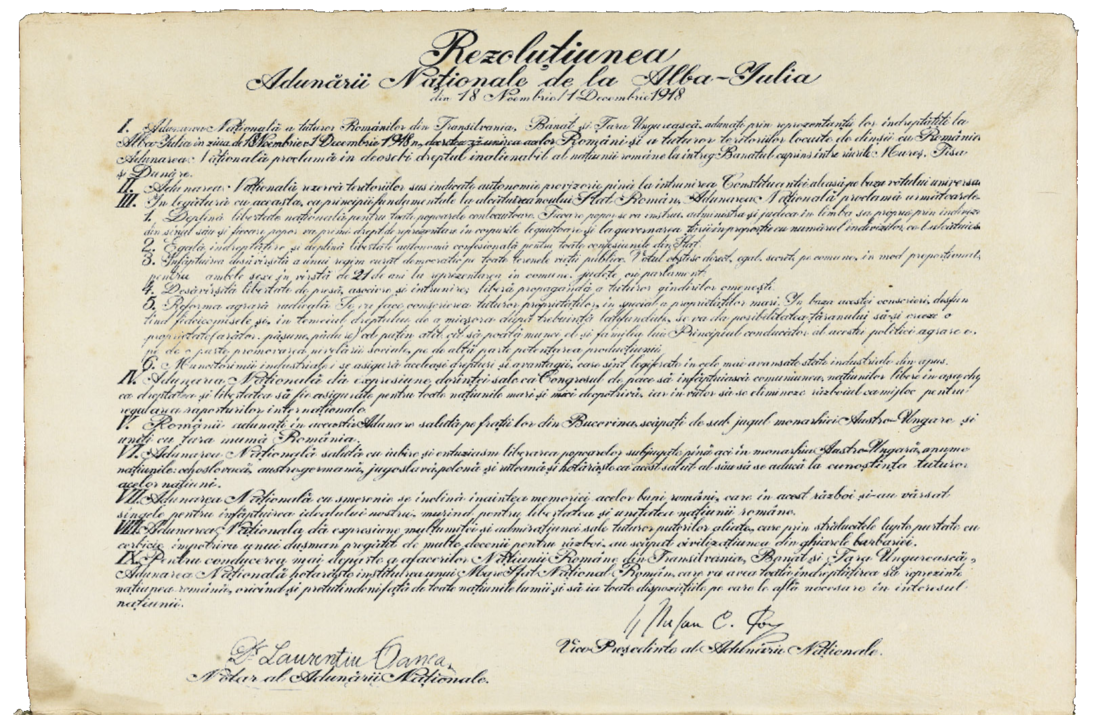 Rezoluțiunea
Adunării Naționale de la Alba-Iulia
din 18 Noembrie/1 Decembrie 1918
I. Adunarea Națională a tuturor Românilor din Transilvania, Banat și Țara Ungurească, adunați prin reprezentanții lor îndreptățiți la
Alba-Iulia în ziua de 18 Noembrie/1 Decembrie 1918, unirea acelor Români și a tuturor teritoriilor locuite de dînșii cu România.
Adunarea Națională proclamă în deosebi dreptul inalienabil al națiunii române la întreg Banatul cuprins între rîurile Mureș, Tisa
și Dunăre.
II. Adunarea Națională rezervă teritoriilor sus indicate autonomie provizorie pînă la întrunirea Constituantei aleasă pe baza votului universal.
III. In legătură cu aceasta, ca principii fundamentale la alcătuirea noului Stat Român, Adunarea Națională proclamă următoarele:
1. Deplină libertate națională pentru toate popoarele conlocuitoare. Fiecare popor se va instrui, administra și judeca în limba sa proprie prin indivizi
din sînul său și fiecare popor va primi drept de reprezentare în corpurile legiuitoare și la guvernarea țării în proporție cu numărul indivizilor ce-l alcătuiesc.
2. Egală îndreptățire și deplină libertate autonomă confesională pentru toate confesiunile din Stat.
3. Infăptuirea desăvîrșită a unui regim curat democratic pe toate terenele vieții publice. Votul obștesc, direct, egal, secret, pe comune, în mod proporțional,
pentru ambele sexe, în vîrstă de 21 de ani la reprezentarea în comune, județe ori parlament.
4. Desăvîrșită libertate de presă, asociere și întrunire; liberă propagandă a tuturor gîndirilor omenești.
5. Reforma agrară radicală. Se va face conscrierea tuturor proprietăților, în special a proprietăților mari. In baza acestei conscrieri, desfiin
țînd fideicomisele și, în temeiul dreptului de a micșora după trebuință latifundiile, se va da posibilitatea țăranului să-și creeze o
proprietate (arător, pășune, pădure) cel puțin atît cît să poată munci el și familia lui. Principiul conducător al acestei politici agrare e,
pe de o parte promovarea nivelării sociale, pe de altă parte potențarea producțiunii.
6. Muncitorimii industriale i se asigură aceleași drepturi și avantagii, care sînt legiferate în cele mai avansate state industriale din apus.
IV. Adunarea Națională dă expresiune dorinței sale ca Congresul de pace să înfăptuiască comuniunea națiunilor libere în așa chip,
ca dreptatea și libertatea să fie asigurate pentru toate națiunile mari și mici deopotrivă, iar în viitor să se elimineze războiul ca mijloc pentru
regularea raporturilor internaționale.
V. Românii adunați în această Adunare salută pe frații lor din Bucovina, scăpați de sub jugul monarhiei Austro-Ungare și
uniți cu țara mumă România.
VI. Adunarea Națională salută cu iubire și entuziasm liberarea popoarelor subjugate pînă aci în monarhia Austro-Ungară, anume
națiunile: cehoslovacă, austrogermană, jugoslavă, polonă și ruteană și hotărăște ca acest salut al său să se aducă la cunoștința tuturor
acelor națiuni.
VII. Adunarea Națională cu smerenie se înclină înaintea memoriei acelor bravi români, care în acest război și-au vărsat
sîngele pentru înfăptuirea idealului nostru, murind pentru libertatea și unitatea națiunii române.
VIII. Adunarea Națională dă expresiune mulțumitei și admirațiunei sale tuturor puterilor aliate, care prin strălucitele lupte purtate cu
cerbicie împotriva unui dușman pregătit de multe decenii pentru război, au scăpat civilizațiunea din ghiarele barbariei.
IX. Pentru conducerea mai departe a afacerilor Națiunii Române din Transilvania, Banat și Țara Ungurească,
Adunarea Națională hotărăște instituirea unui Mare Sfat Național Român, care va avea toată îndreptățirea să reprezinte
națiunea română, oricînd și pretutindeni față de toate națiunile lumii și să ia toate dispozițiile pe care le află necesare în interesul
națiunii.
Ștefan C. Pop
Vice Președinte al Adunării Naționale.
Dr Laurențiu Oanea,
Notar al Adunării Naționale.